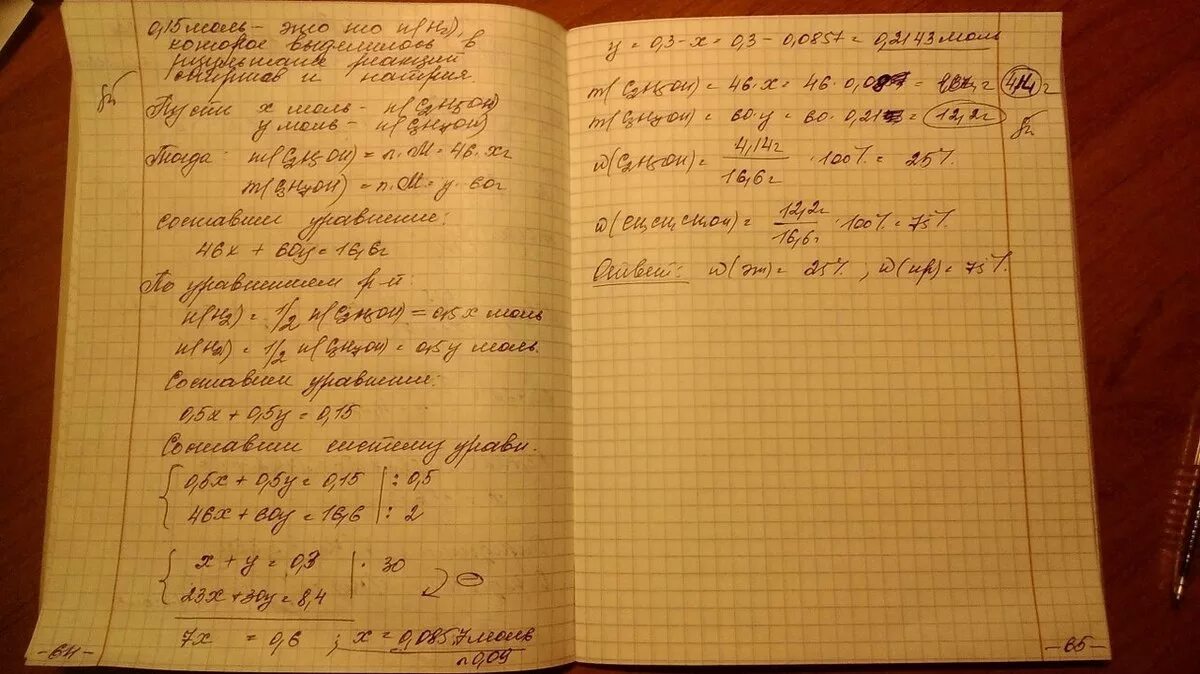 0,15 моль – это то n(H2),
которое выделилось в
результате реакций
спиртов и натрия.
Пусть x моль – n(C2H5OH)
y моль – n(C3H7OH)
Тогда: m(C2H5OH) = n·M = 46·xг
m(C3H7OH) = n·M = y·60г
Составим уравнение:
46x + 60y = 16,6г
По уравнениям р-й:
n(H2) = 1/2 n(C2H5OH) = 0,5x моль
n(H2) = 1/2 n(C3H7OH) = 0,5y моль.
Составим уравнение:
0,5x + 0,5y = 0,15
Составим систему уравн.
0,5x + 0,5y = 0,15 | : 0,5
46x + 60y = 16,6 | : 2
x + y = 0,3 | · 30
23x + 30y = 8,4
7x = 0,6 ; x = 0,0857 моль
≈0,09
-64-
y = 0,3 - x = 0,3 - 0,0857 = 0,2143 моль
m(C2H5OH) = 46·x = 46·0,08 = г 4,14 г
m(C3H7OH) = 60·y = 60·0,21 = 12,2г
W(C2H5OH) = 4,14г / 16,6г · 100% = 25%
W(CH3CH2CH2OH) = 12,2г / 16,6г · 100% = 75%
Ответ: W(эт) = 25% ; W(пр) = 75%.
-65-